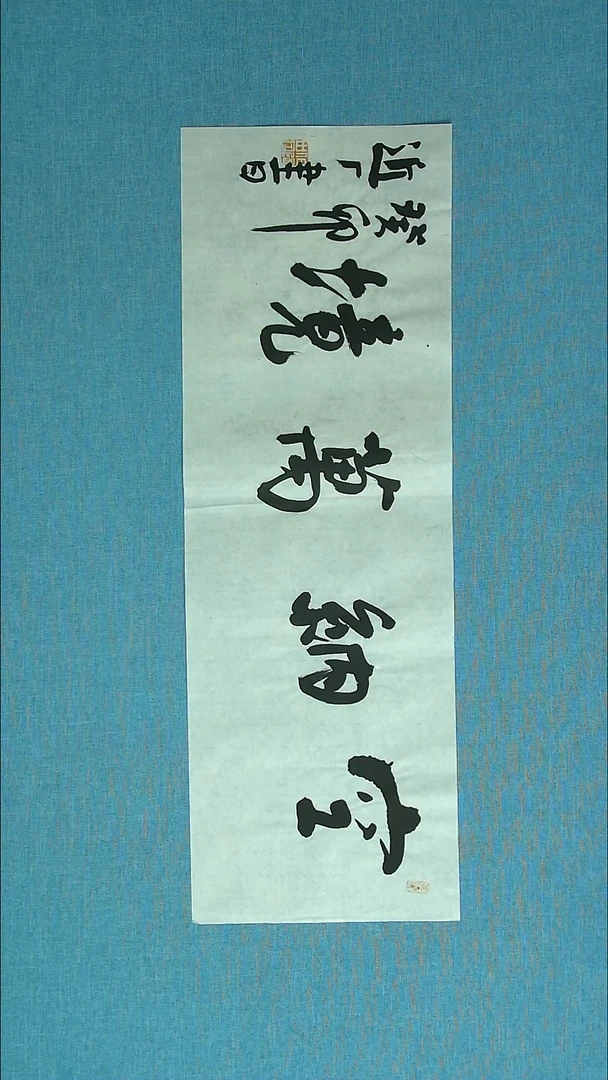 空納萬境
癸卯
近厂書